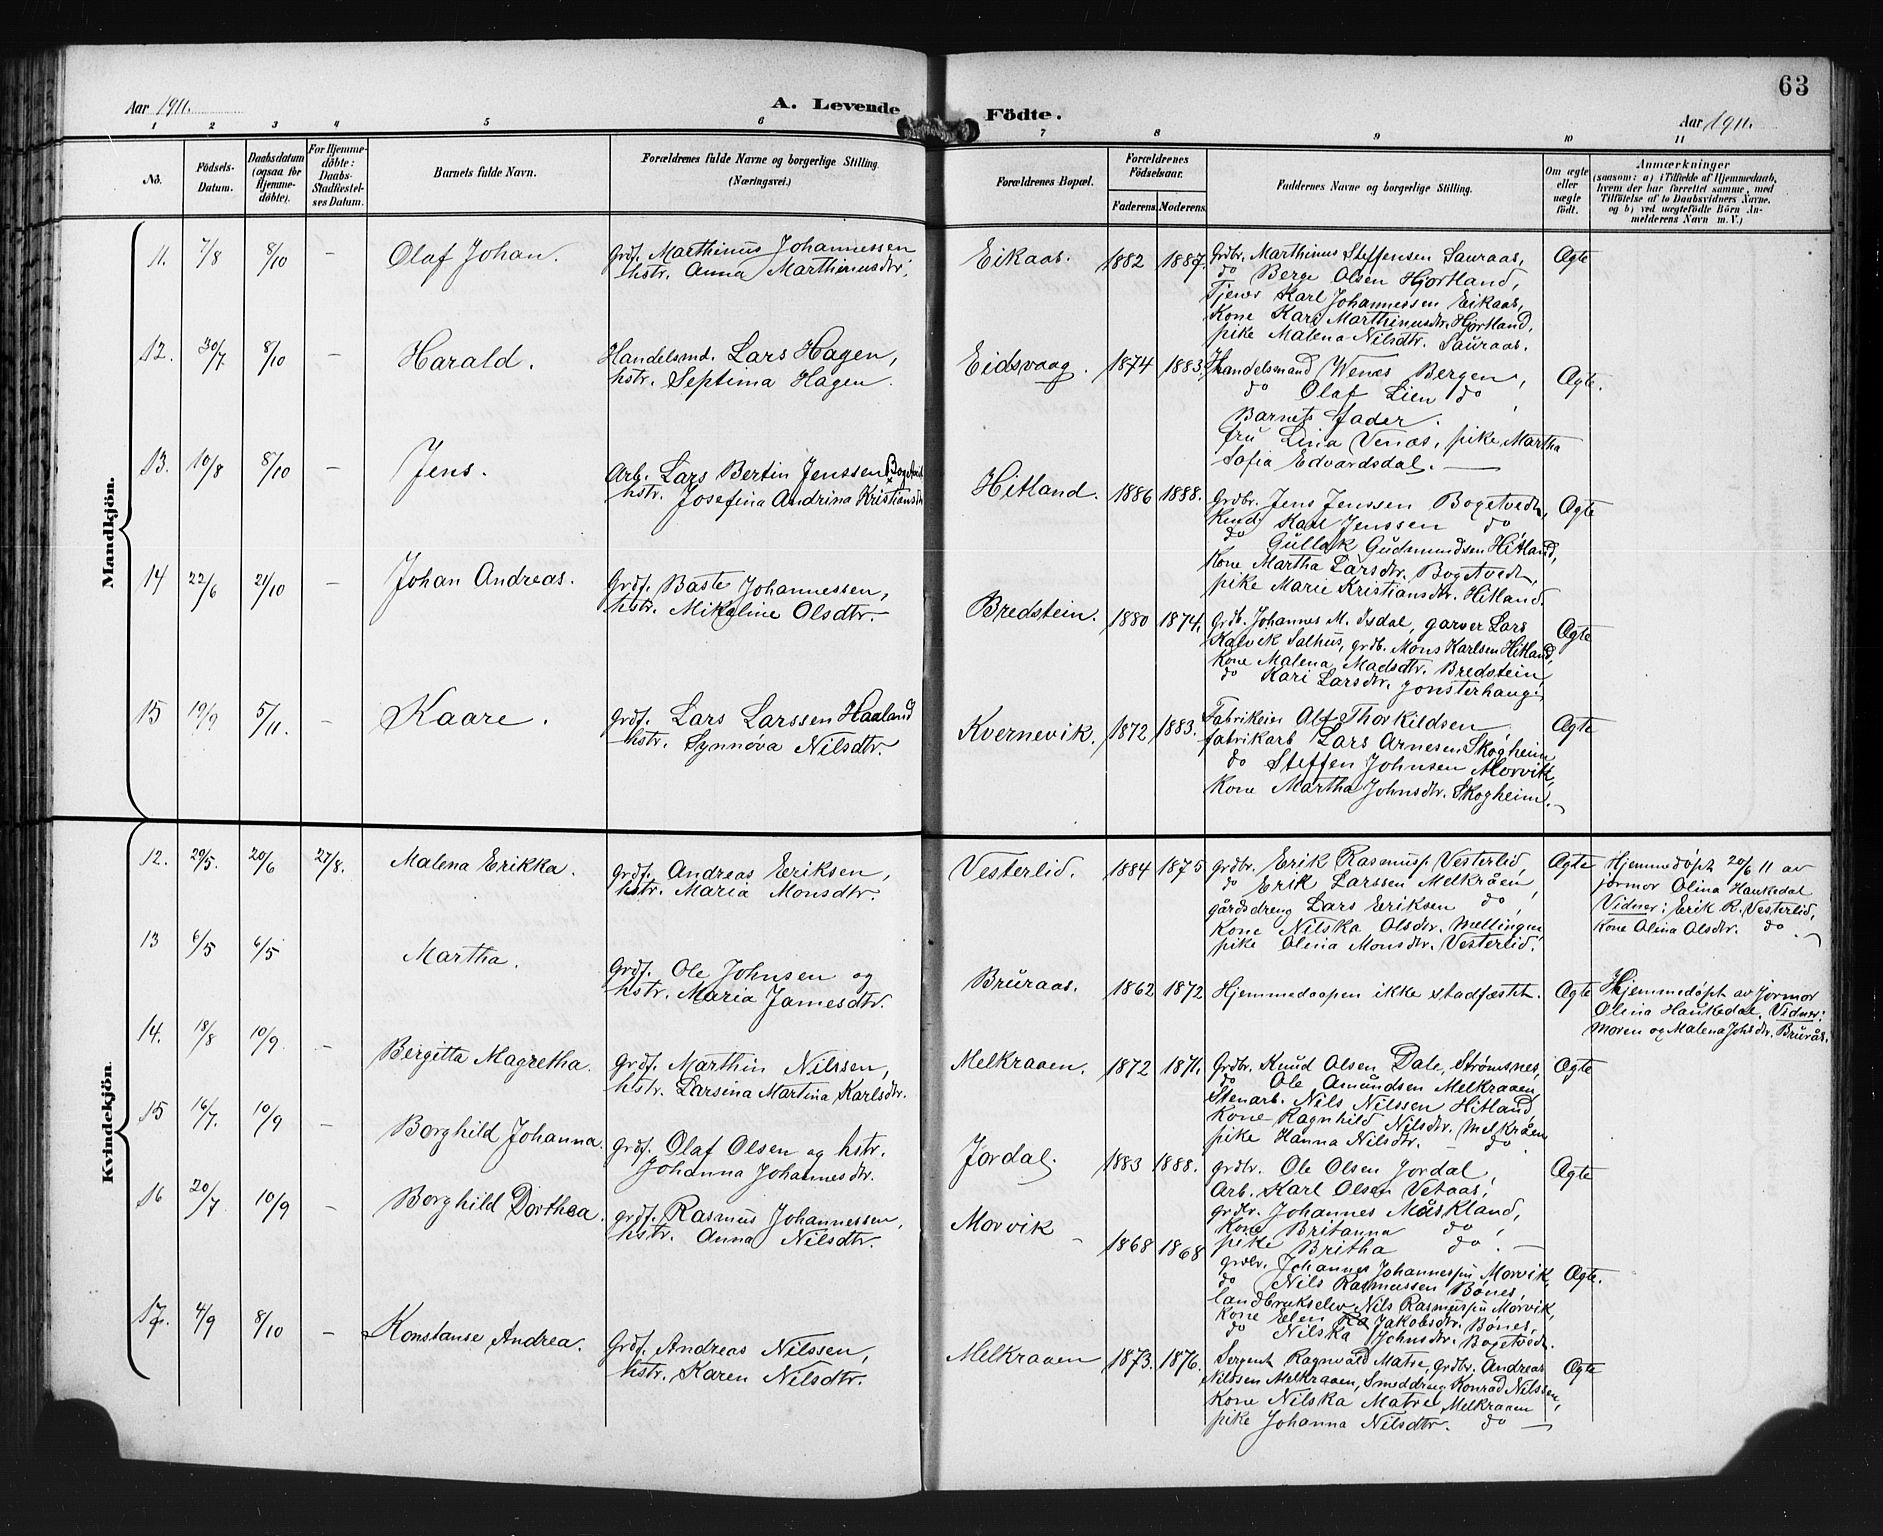 63
Aar 1911.
A. Levende
Födte.
Aar 1911.
1 2 3 4 5 6 7 8 9 10 11
No.
Födsels-
Datum.
Daabsdatum
(ogsaa for
Hjemme-
döbte).
For Hjemme-
döbte:
Daabs-
Stadfæstel-
ses Datum.
Barnets fulde Navn.
Forældrenes fulde Navne og borgerlige Stilling.
(Næringsvei.)
Forældrenes Bopæl.
Forældrenes
Födselsaar.
Faderens. Moderens.
Faddernes Navne og borgerlige Stilling.
Om ægte
eller
uægte
födt.
Anmærkninger
(saasom: a) i Tilfælde af Hjemmedaab,
hvem der har forrettet samme, med
Tilföielse af to Daabsvidners Navne.
og b) ved uægtefödte Börn An-
melderens Navn m. V.)
Mandkjön.
11. 7/8 8/10 – Olaf Johan.
Grdf. Marthinus Johannessen
hstr. Anna Marthinusdtr.
Eikaas. 1882 1887.
Grdbr. Marthinus Steffensen Sauraas,
do Berge Olsen Hjortland,
Tjener Karl Johannessen Eikaas,
Kone Kari Marthinusdtr. Hjortland,
pike Malena Nilsdtr. Sauraas.
Ægte
12. 30/7 8/10 – Harald.
Handelsmd. Lars Hagen,
hstr. Septima Hagen.
Eidsvaag. 1874 1883.
Handelsmand Wenæs Bergen,
do Olaf Lien do
Barnets fader.
fru Lina Venæs, pike Martha
Sofia Edvardsdal. —
Ægte.
13. 10/8 8/10 – Jens.
Arb. Lars Bertin Jenssen
hstr. Josefina Andrina
Hitland. 1886 1888.
Grdbr. Jens Jenssen Bogetvedt,
Karl Jenssen do
do Gullak Gudmundsen Hitland,
Kone Martha Larsdtr. Bogetvedt,
pike Marie Kristiansdtr. Hitland.
Ægte
14 22/6 21/10 – Johan Andreas.
Grdf. Baste Johannessen,
hstr. Mikaline Olsdtr. –
Bredstein. 1880 1874.
Grdb. Johannes M. Isdal, garver Lars
Kalvik Salhus, grdb. Mons Karlsen Hitland,
Kone Malena Madsdtr. Bredstein,
do Kari Larsdtr. Jonsterhaug.
Ægte
15 19/9 5/11. – Kaare.
Grdf. Lars Larssen Haaland
hstr. Synnøva Nilsdtr.
Kvernevik. 1872 1883.
Fabrikeier Alf Thorkildsen
fabrikarb Lars Arnesen Skogheim,
do Steffen Johnsen Morvik,
Kone Martha Johnsdtr. Skogheim.
Ægte
Kvindekjön.
12. 29/5. 20/6 27/8. Malena Erikka.
grdf. Andreas Eriksen,
hstr. Maria Monsdtr.
Vesterlid. 1884 1875
grdbr. Erik Rasmusp. Vesterlid
do Erik Larssen Melkråen,
gårdsdreng Lars Eriksen do,
Kone Nilska Olsdtr. Mellingen
pike Olina Monsdtr. Vesterlid.
Ægte
Hjemmedøpt 20/6 11 av
jormor Olina Haukedal
Vidner: Erik R. Vesterlid,
Kone Olina Olsdtr. do.
13 6/5 6/5 Martha.
Grdf. Ole Johnsen og
hstr. Maria Jamesdtr.
Bruraas. 1862 1872
Hjemmedaapen ikke stadfæstet.
Ægte
Hjemmedøpt av Jormor
Olina Haukedal. Vidner:
Moren og Malena Johsdtr. Brurås.
14. 18/8 10/9. – Bergitta Magretha.
Grdf. Marthin Nilssen,
hstr. Larsina Martina Karlsdtr.
Melkraaen. 1872 1871.
Grdbr. Knud Olsen Dale, Strømsnes,
do Ole Amundsen Melkraaen,
Stenarb. Nils Nilssen Hitland,
Kone Ragnhild Nilsdtr. Melkråen
pike Hanna Nilsdtr. – do.
Ægte
15 16/7. 10/9 – Borghild Johanna.
Grdf. Olaf Olsen og hstr.
Johanna Johannesdtr.
Jordal. 1883 1888.
grdbr. Ole Olsen Jordal,
Arb. Karl Olsen Vetaas,
grdbr. Johannes Måskland,
Kone Britanna do,
pike Britha do. —
Ægte
16 20/7 10/9 – Borghild Dorthea.
grdf. Rasmus Johannessen,
hstr. Anna Nilsdtr.
Morvik – 1868 1868
grdbr. Johannes Johannespn Morvik,
do Nils Rasmussen Bönes,
landbrukselev Nils Rasmuspn Morvik,
Kone Elen Jakobsdtr. Bönes,
do Nilska Johnsdtr. Bogetvedt.
Ægte.
17. 4/9 8/10 – Konstanse Andrea.
Grdf. Andreas Nilssen,
hstr. Karen Nilsdtr.
Melkraaen 1873. 1876.
Sergent Ragnvald Matre, Grdbr. Andreas
Nilssen Melkraaen, Smeddreng Konrad Nilssen,
Kone Nilska Matre, Melkraaen
pike Johanna Nilsdtr. do —
Ægte